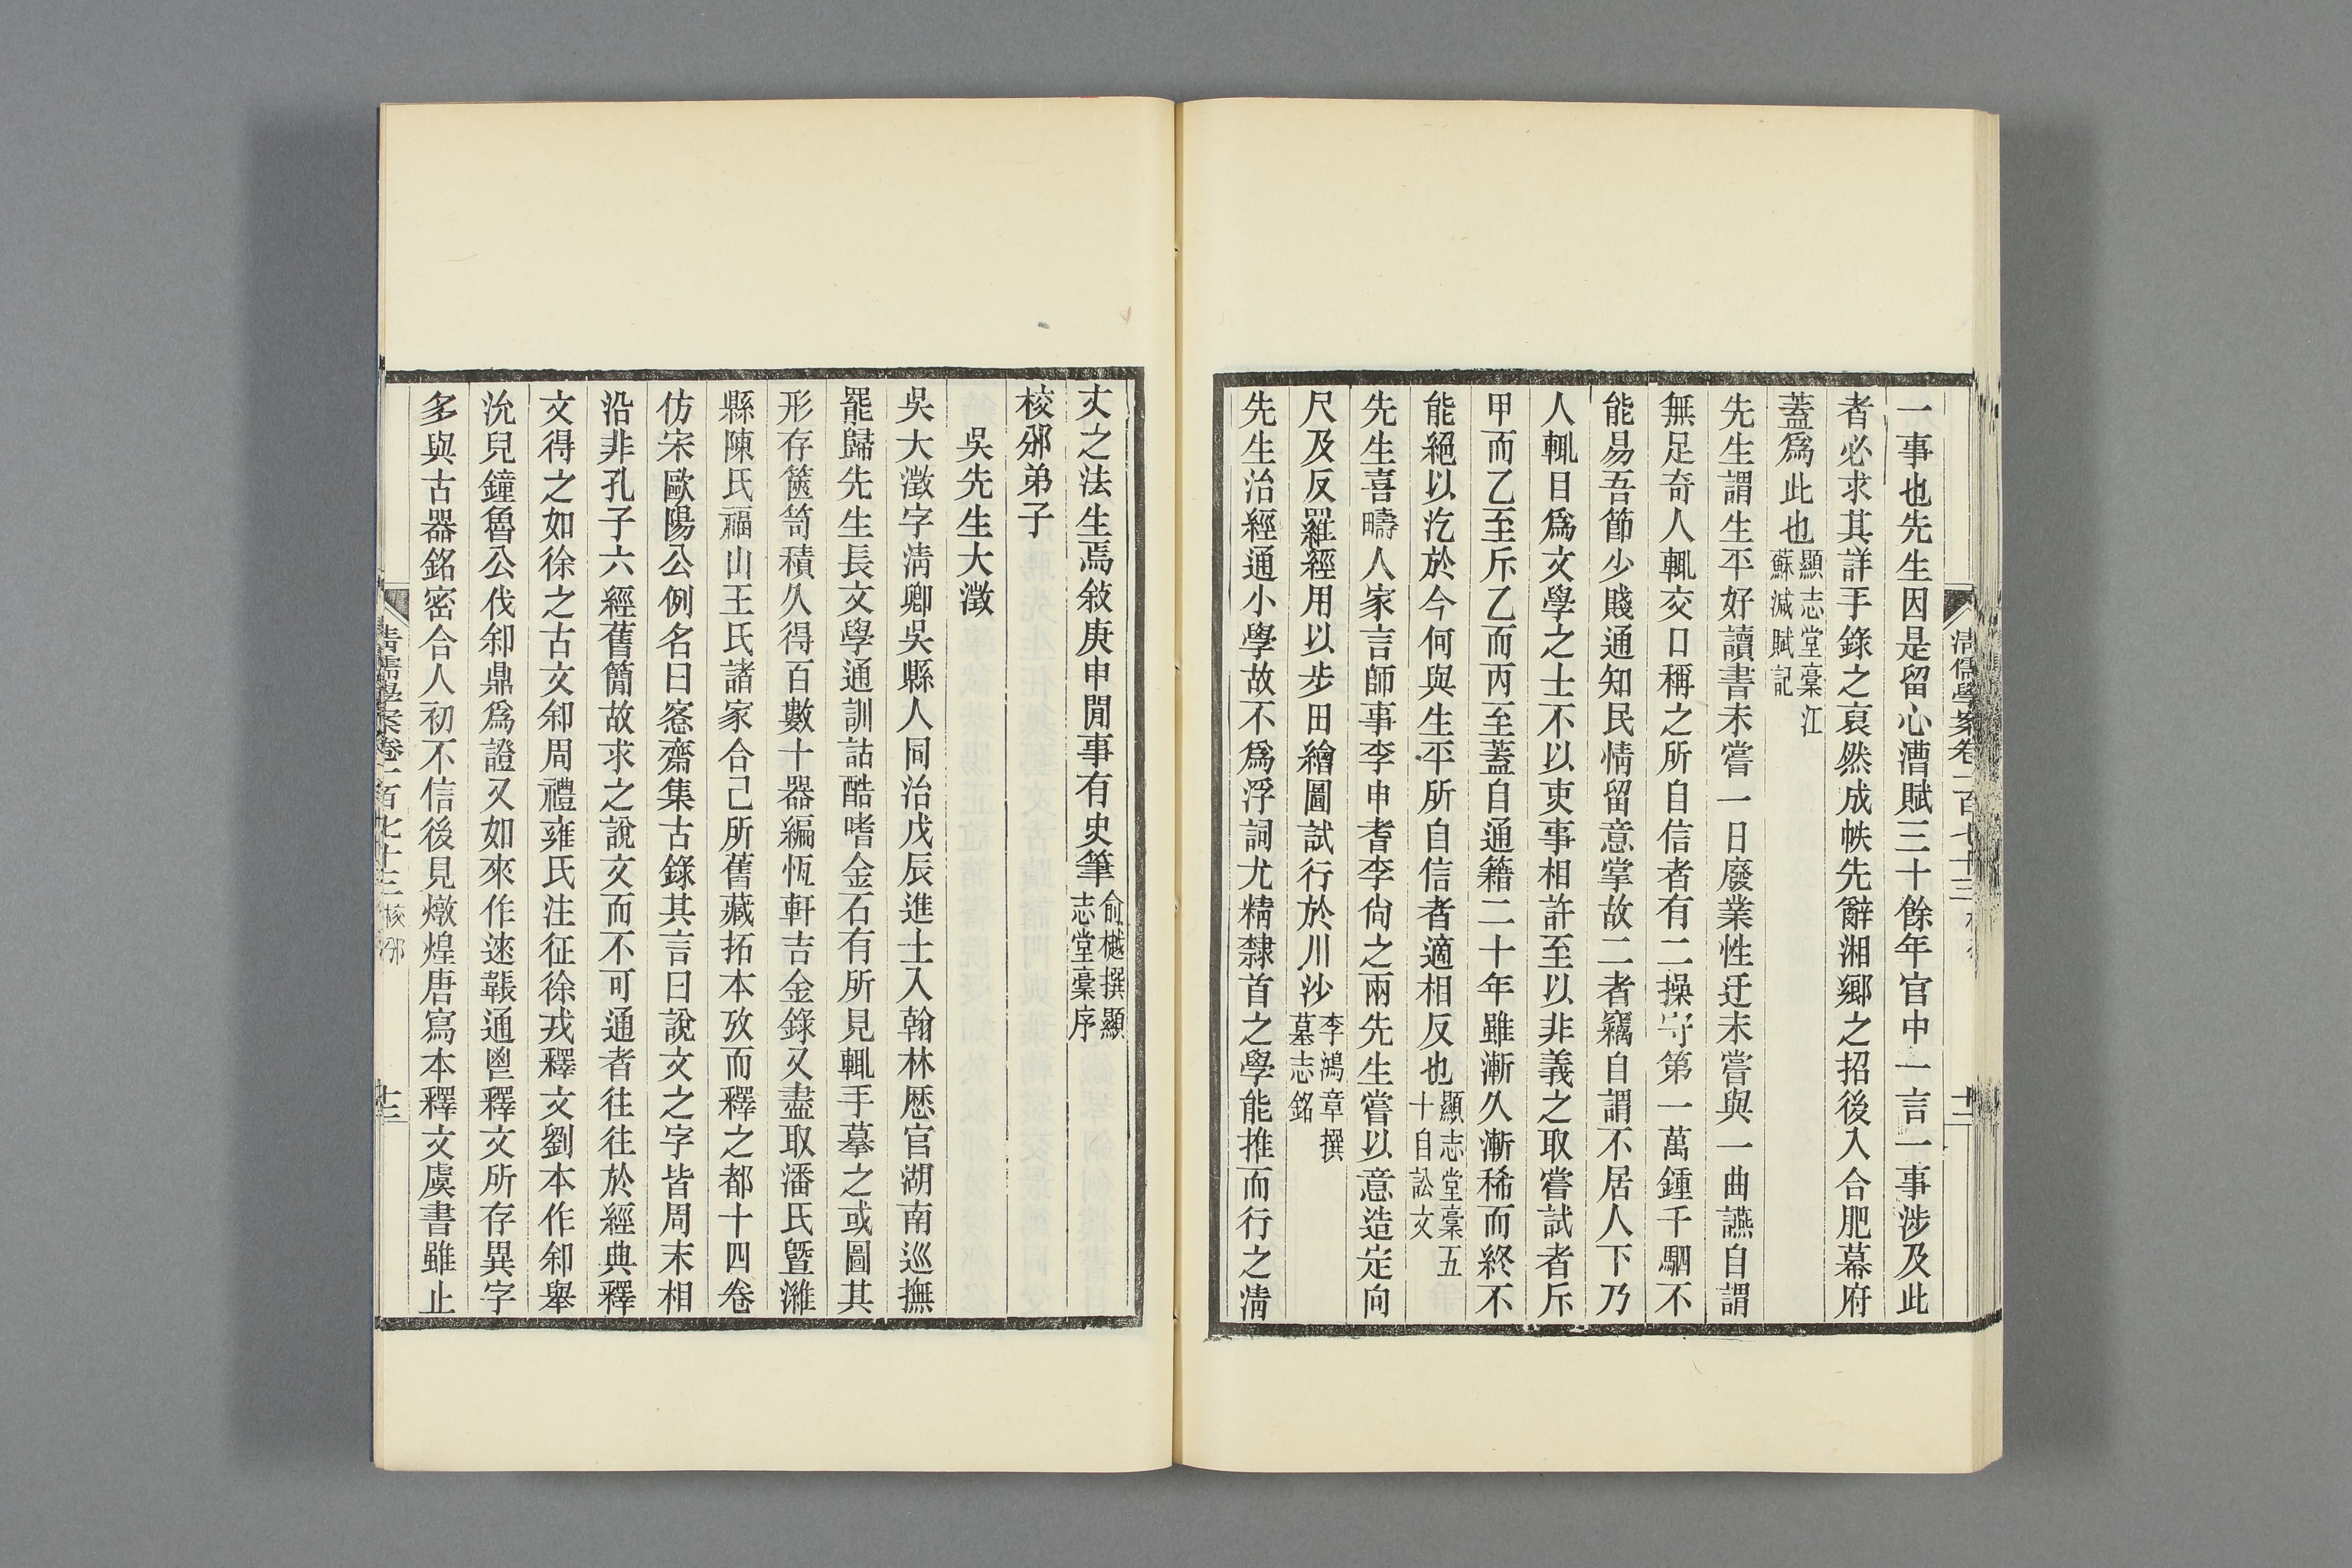 一事也先生因是留心漕賦三十餘年官中一言一事涉及此
者必求其詳手錄之裒然成帙先辭湘鄉之招後入合肥幕府
蓋爲此也顯志堂稾江蘇減賦記
先生謂生平好讀書未嘗一日廢業性迂未嘗與一曲讌自謂
無足奇人輒交口稱之所自信者有二操守第一萬鍾千駟不
能易吾節少賤通知民情留意掌故二者竊自謂不居人下乃
人輒目爲文學之士不以吏事相許至以非義之取嘗試者斥
甲而乙至斥乙而丙至蓋自通籍二十年雖漸久漸稀而終不
能絕以汔於今何與生平所自信者適相反也顯志堂稾五十自訟文
先生喜疇人家言師事李申耆李尙之兩先生嘗以意造定向
尺及反羅經用以步田繪圖試行於川沙李鴻章撰墓志銘
先生治經通小學故不爲浮詞尤精隸首之學能推而行之淸
丈之法生焉敘庚申閒事有史筆俞樾撰顯志堂稾序
校邠弟子
吳先生大澂
吳大澂字淸卿吳縣人同治戊辰進士入翰林歷官湖南巡撫
罷歸先生長文學通訓詁酷嗜金石有所見輒手摹之或圖其
形存篋笥積久得百數十器編恆軒吉金錄又盡取潘氏曁濰
縣陳氏福山王氏諸家合己所舊藏拓本攷而釋之都十四卷
仿宋歐陽公例名曰愙齋集古錄其言曰說文之字皆周末相
沿非孔子六經舊簡故求之說文而不可通者往往於經典釋
文得之如徐之古文䣄周禮雍氏注征徐戎釋文劉本作䣄舉
沇兒鐘魯公伐䣄鼎爲證又如來作逨韔通鬯釋文所存異字
多與古器銘密合人初不信後見燉煌唐寫本釋文虞書雖止
淸儒學案卷一百七十三 校邠
十二
淸儒學案卷一百七十三 校邠
十三